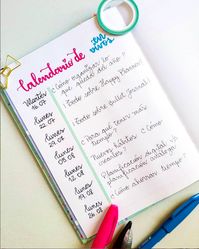 Calendario de
en vivos
Martes
16 07
¿Cómo organizar lo
que queda del año?
lunes
22 07
¡Todo sobre Happy Planner!
lunes
29 07
¡Todo sobre Bullet Journal!
lunes
05 08
Para qué tener más
tiempo?
lunes
12 08
Nuevos hábitos ¿Cómo
crearlos?
lunes
19 08
Planificación digital v/s
planificación análoga
lunes
26 08
¿Cómo ahorrar tiempo?